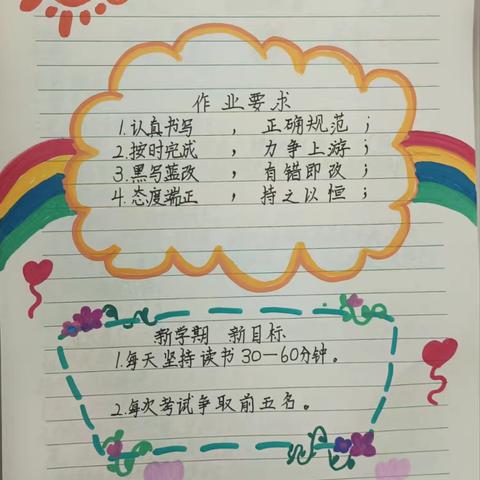 作业要求
1.认真书写，正确规范；
2.按时完成，力争上游；
3.黑写蓝改，有错即改；
4.态度端正，持之以恒；
新学期 新目标
1.每天坚持读书30—60分钟。
2.每次考试争取前五名。